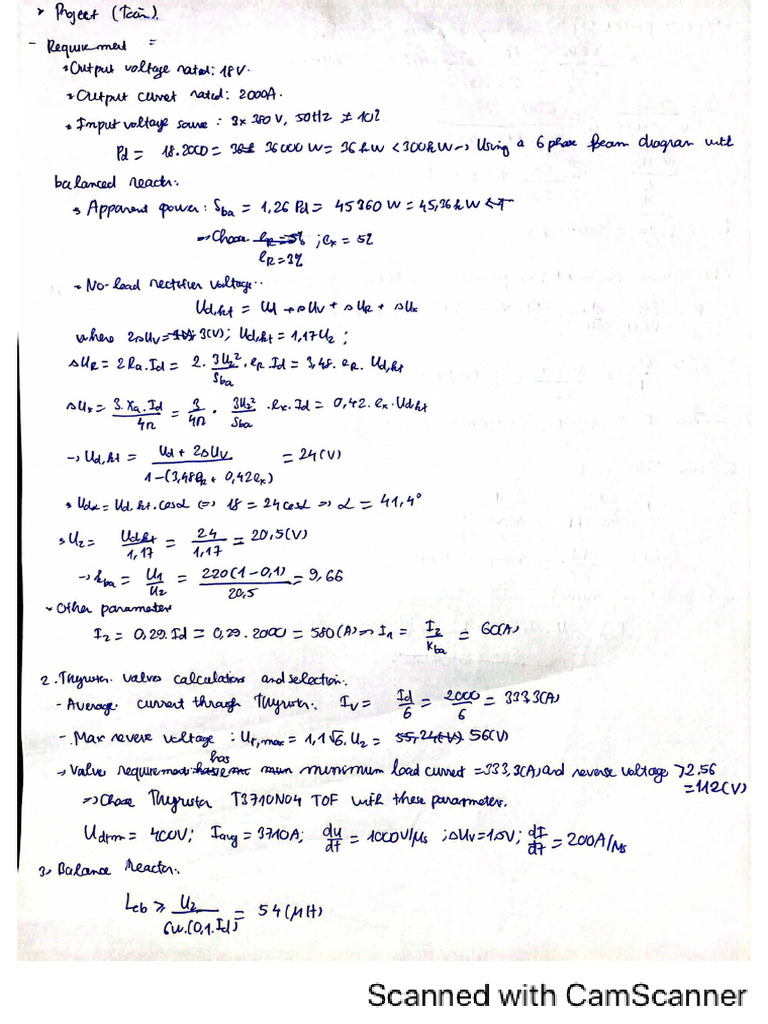 > Project (Toàn).
- Requirement =
* Output voltage rated: 18V.
* Output curret rated: 2000A.
* Input voltage sourse: 3x380V, 50Hz ± 10%
Pd = 18.2000 = 36000W = 36kW < 300kW -> Using a 6 phase beam diagram with
balanced reactor.
> Apparent power: Sba = 1,26 Pd = 45360 W = 45,36kW
=> Choose eR=5% ; ex = 5%
eR = 3%
* No-load rectifier voltage:
Ud,kt = Ud + ΔUv + ΔUR + ΔUx
where 2ΔUv = 3(V); Ud,kt = 1,17U2;
ΔUR = 2Ra.Id = 2. 3U2²/Sba .eR.Id = 3,48. eR. Ud,kt
ΔUx = 3.Xa.Id/4π = 3/4π . 3U2²/Sba .ex.Id = 0,42.ex.Udkt
-> Ud,kt = Ud + 2ΔUv / 1-(3,48eR + 0,42ex) = 24(V)
* Udα = Ud,kt.cosα <=> 18 = 24cosα => α = 41,4°
> U2 = Ud,kt/1,17 = 24/1,17 = 20,5(V)
-> kba = U1/U2 = 220(1-0,1)/20,5 = 9,66
* Other parameters
I2 = 0,29.Id = 0,29.2000 = 580(A) => I1 = I2/kba = 60(A)
2. Thyristor valves calculations and selection:
- Average current through Thyristor: Iv = Id/6 = 2000/6 = 333,3(A)
- Max revere voltage: Ur,max = 1,1√6.U2 = 55,24(V) 56(V)
has
-> Valve requirement minimum load current = 333,3(A) and reverse voltage > 2.56
= 112(V)
=> Chose Thyristor T3710N04 TOF with these parameters.
Udrm = 400V; Iavg = 3710A; du/dt = 1000V/μs ; ΔUv = 1,5V; dI/dt = 200A/μs
3, Balance reactor:
Lcb ≥ U2/6ω.(0,1.Id) = 54(μH)
Scanned with CamScanner